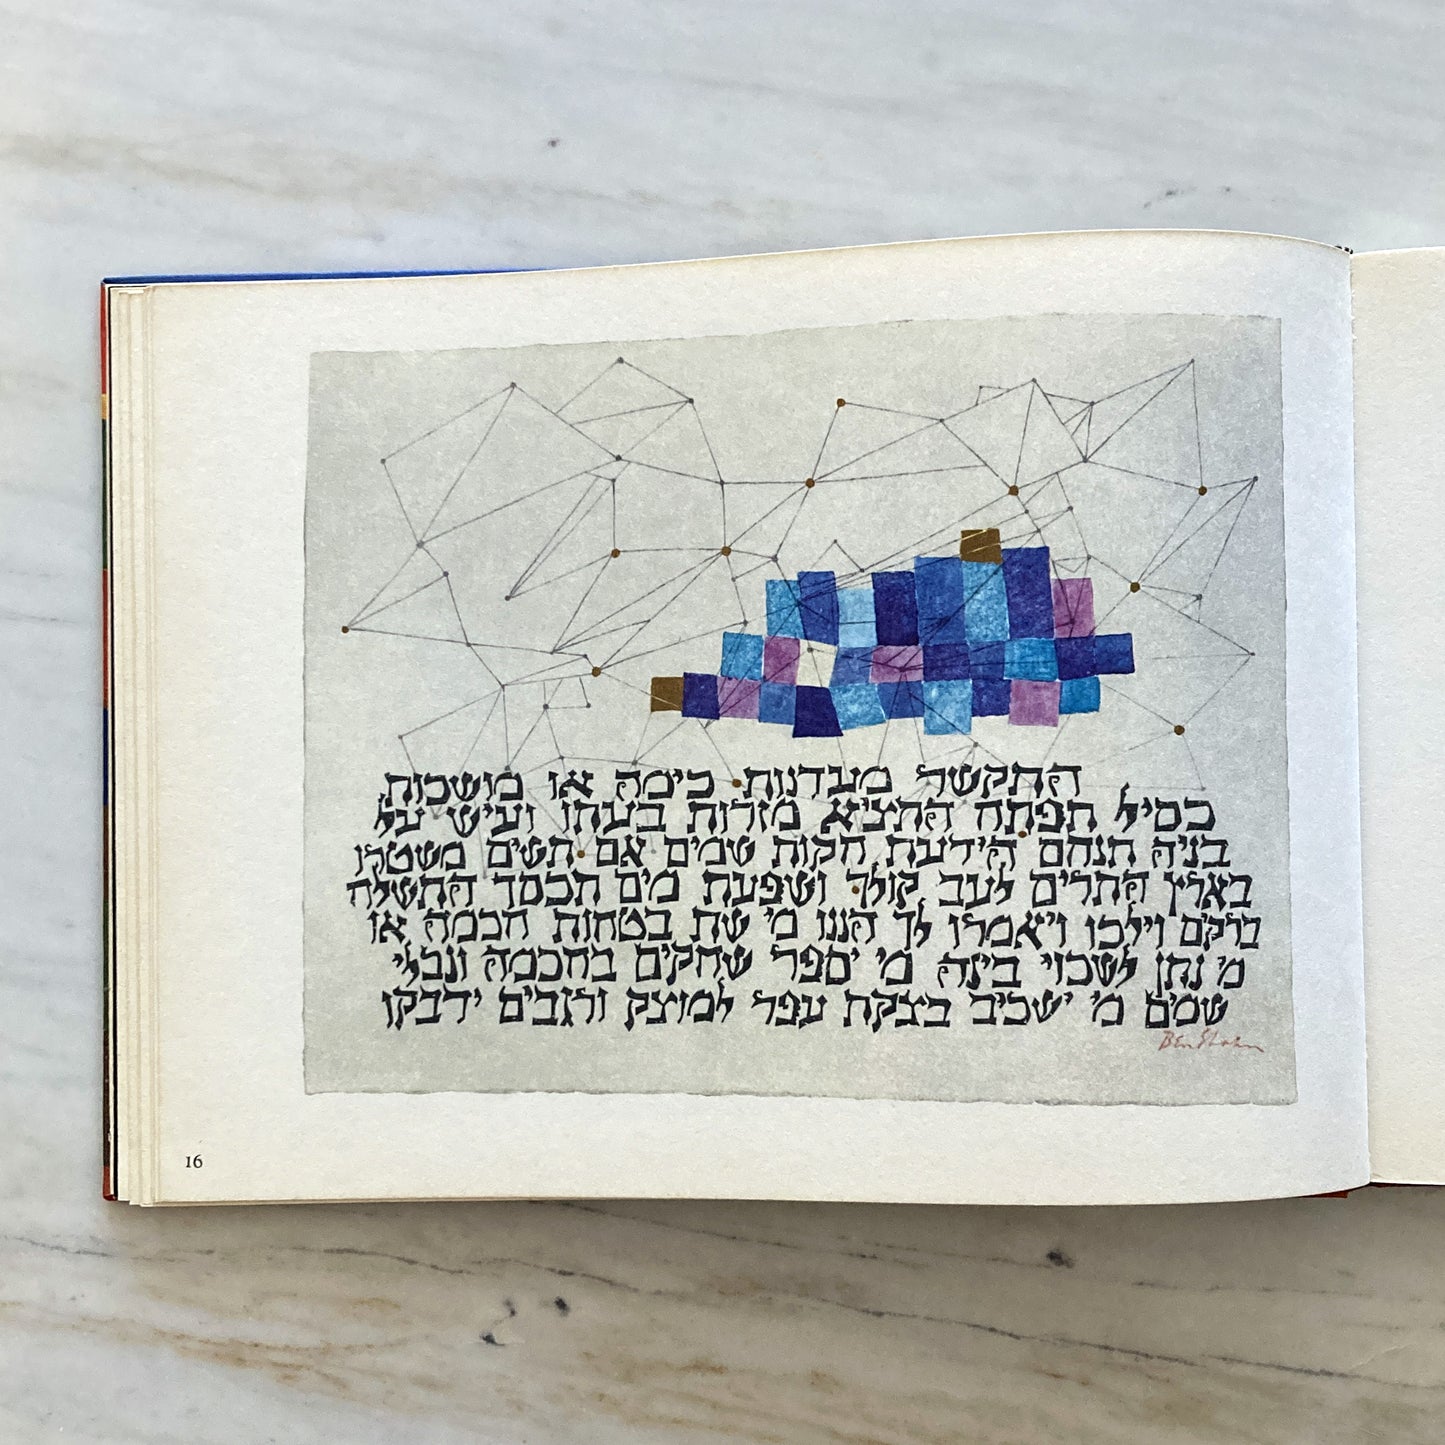 התקשר מעדנות כימה או מושכות
כסיל תפתח התציא מזרות בעתו ועיש על
בניה תנחם הידעת חקות שמים אם תשים משטרו
בארץ התרים לעב קולך ושפעת מים תכסך התשלח
ברקים וילכו ויאמרו לך הננו מי שת בטחות חכמה או
מי נתן לשכוי בינה מי יספר שחקים בחכמה ונבלי
שמים מי ישכיב בצקת עפר למוצק ורגבים ידבקו
Ben Shahn
16